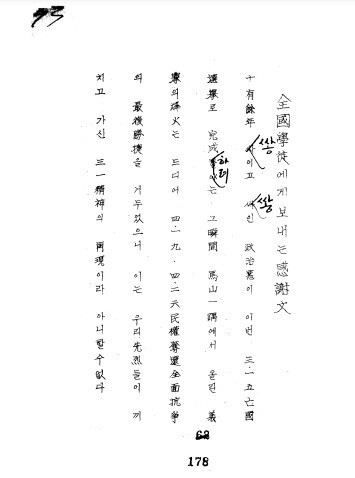 全國學徒에게보내는感謝文
十有餘年 쌓이고 쌓인 政治惡이 이번 三·一五亡國
選擧로 完成하려는 그瞬間 馬山一隅에서 올린 義
擧의 烽火는 드디어 四·一九·四·二六民權奪還全面抗爭
의 最後勝捷을 거두었으니 이는 우리先烈들이 끼
치고 가신 三一精神의 再現이라 아니할수없다
68
178